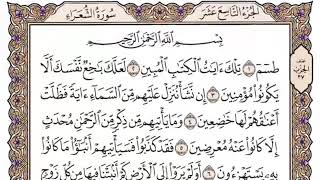 الجزء التاسع عشر
سورة الشعراء
بِسْمِ اللَّهِ الرَّحْمَٰنِ الرَّحِيمِ
طسٓمٓ ١ تِلْكَ ءَايَٰتُ ٱلْكِتَٰبِ ٱلْمُبِينِ ٢ لَعَلَّكَ بَٰخِعٌ نَّفْسَكَ أَلَّا
يَكُونُوا۟ مُؤْمِنِينَ ٣ إِن نَّشَأْ نُنَزِّلْ عَلَيْهِم مِّنَ ٱلسَّمَآءِ ءَايَةً فَظَلَّتْ
أَعْنَٰقُهُمْ لَهَا خَٰضِعِينَ ٤ وَمَا يَأْتِيهِم مِّن ذِكْرٍ مِّنَ ٱلرَّحْمَٰنِ مُحْدَثٍ
إِلَّا كَانُوا۟ عَنْهُ مُعْرِضِينَ ٥ فَقَدْ كَذَّبُوا۟ فَسَيَأْتِيهِمْ أَنۢبَٰٓؤُا۟ مَا كَانُوا۟
بِهِۦ يَسْتَهْزِءُونَ ٦ أَوَلَمْ يَرَوْا۟ إِلَى ٱلْأَرْضِ كَمْ أَنۢبَتْنَا فِيهَا مِن كُلِّ زَوْجٍ
الحزب
٣٧